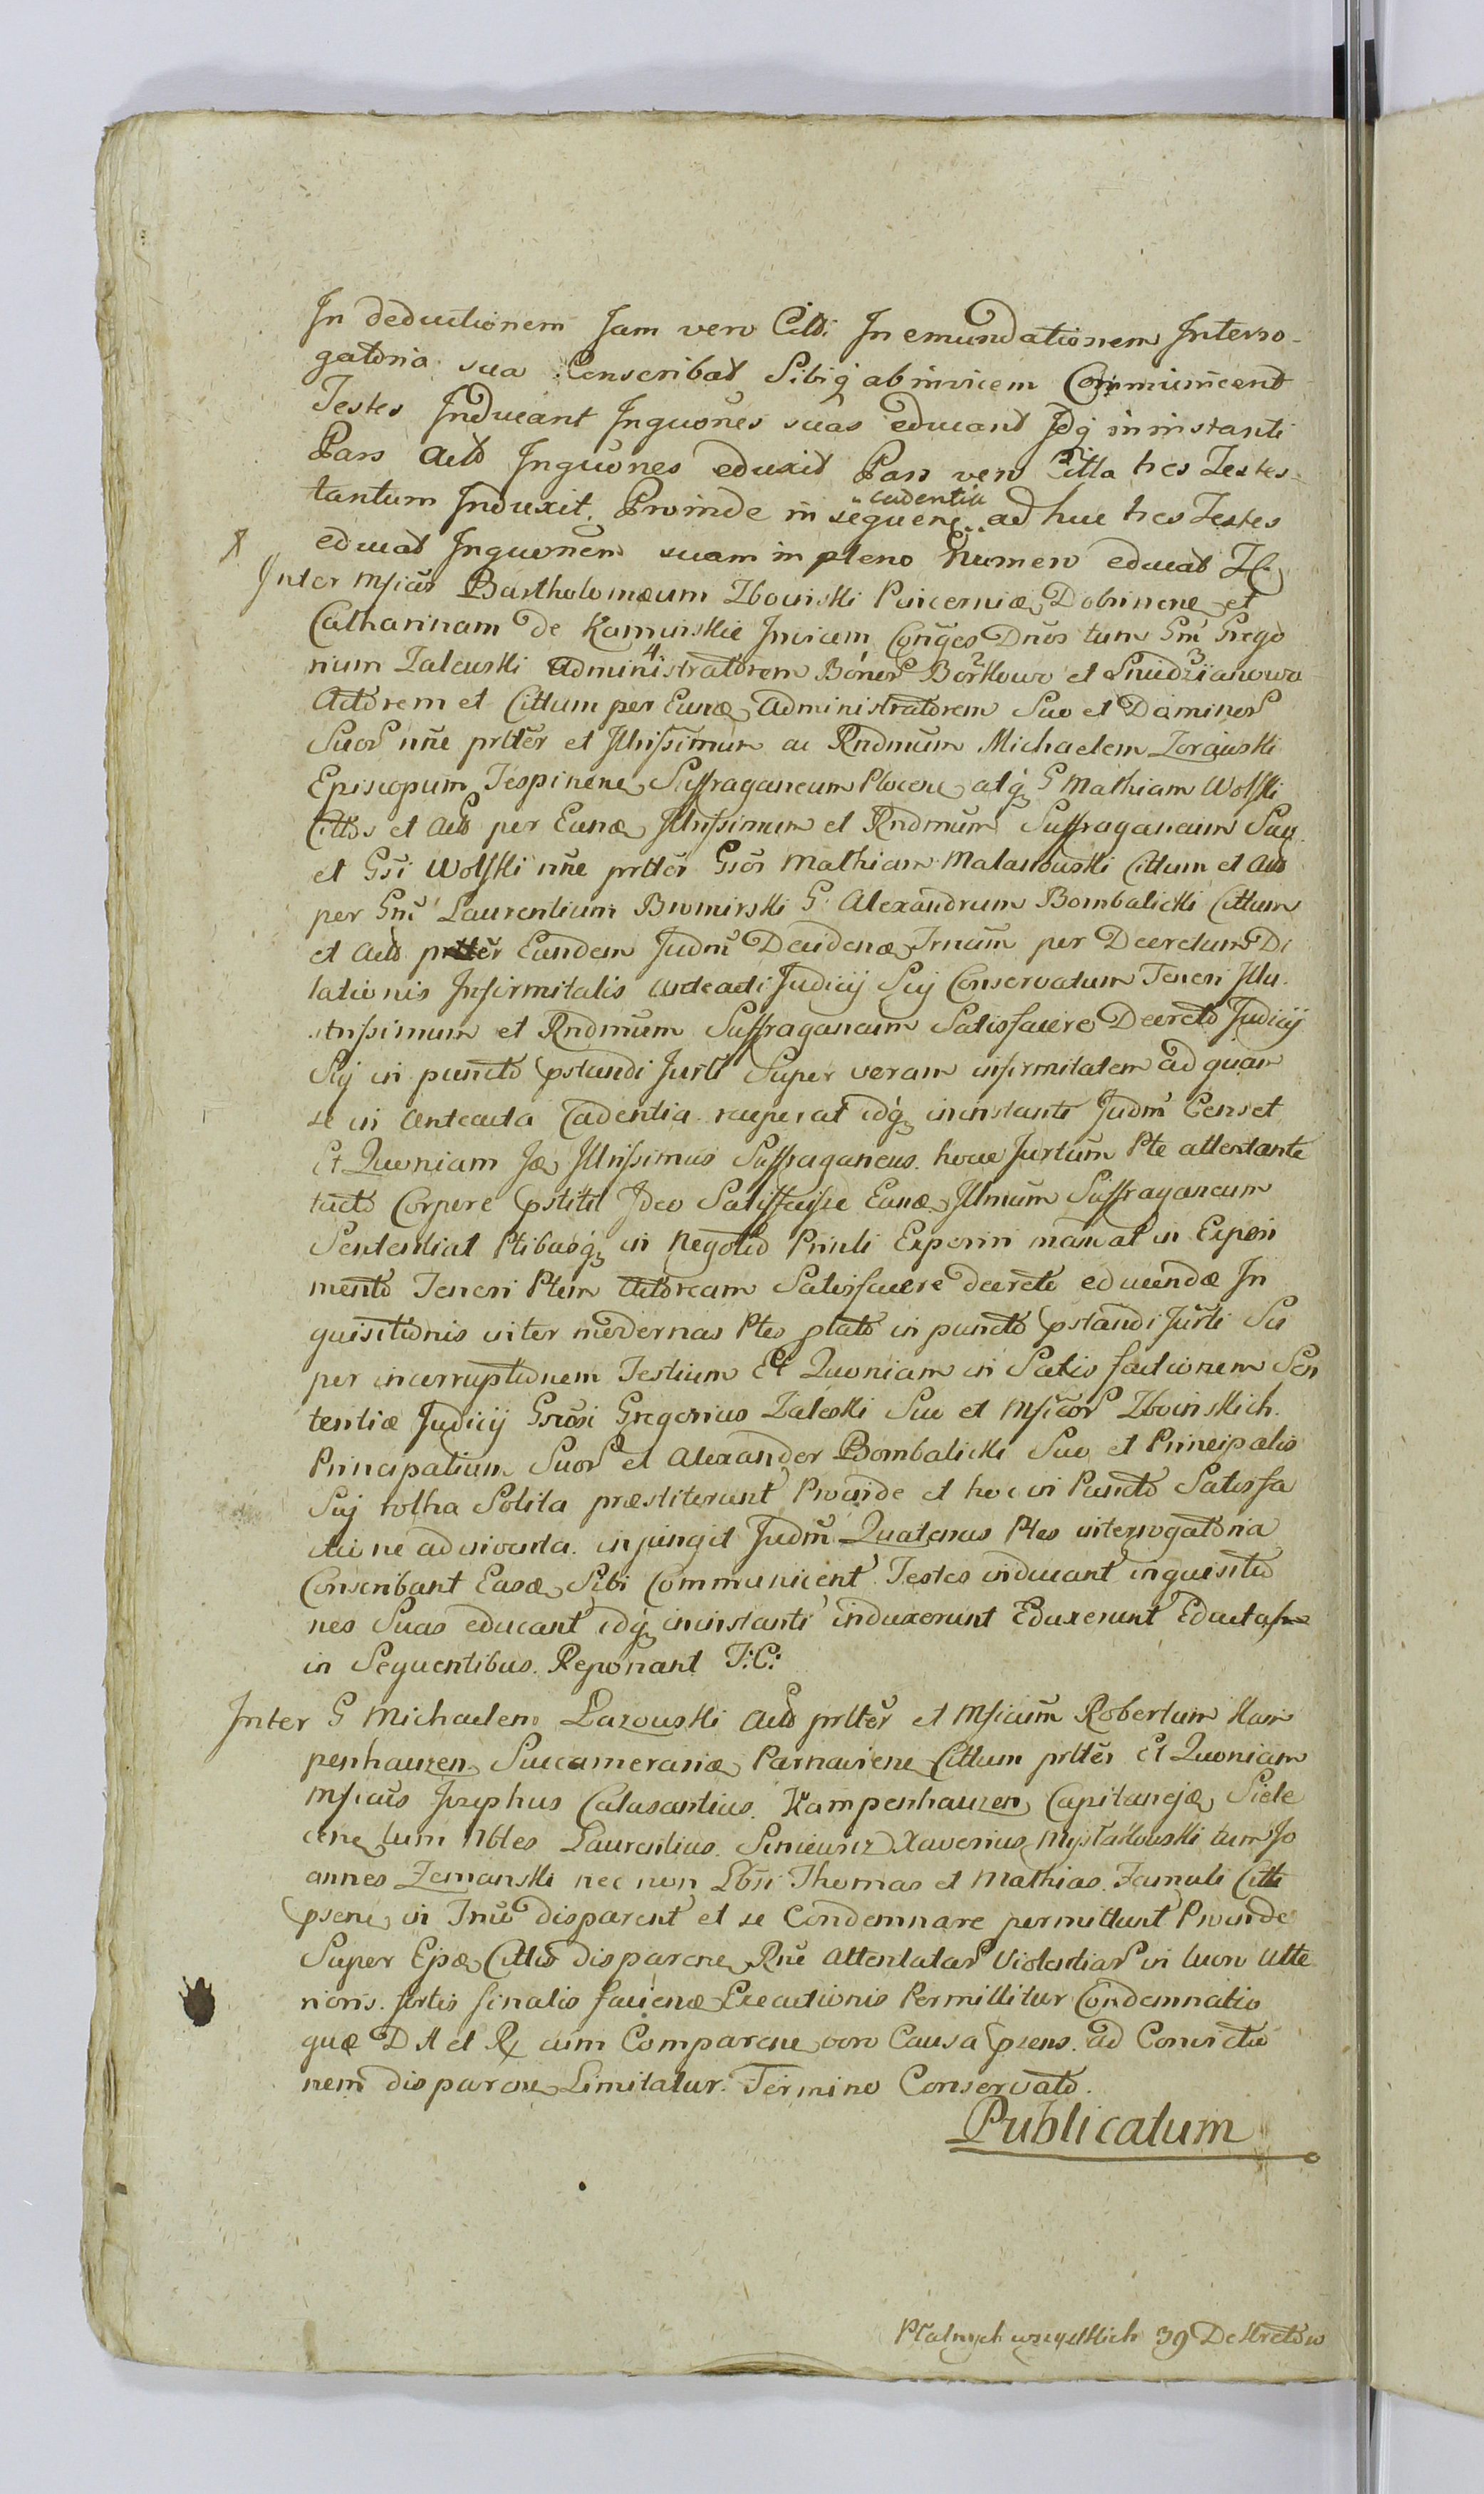 In deductionem Jam vero Citti In emundationem Interro-
gatoria sua Conscribat Sibiq̃ ab invicem Communicent
Testes Inducant Inquõnes suas educant Idq̃ in instanti
Pars Acto Inquõnes eduxit Pars vero Citta tres Testes
tantum Induxit. Proinde in sequene adhuc tres Testes
cadentia
educat Inquõnem suam in pleno Numero educat
Inter Mficũs Bartholomæum Zboinski Pincernæ Dobrinene et
Catharinam de Kaminskie Invicem Conĩges Dnõs tum Gm̃ Grego
rium Zaleuski Administratorem Bonor Borkowo et Sniedzianowo
4 1 2 3
Actorem et Cittum per Eunæ Administratorem Suo et Dominor
Suor nñe prltẽr et Illrissimum ac Rndm̃um Michaelem Zorawski
Episcopum Jespinene Suffraganeum Plocene atq̃ G Mathiam Wolski
Cittos et Acto per Eunæ Illrissimum et Rndmũm Suffraganeum Suo
et Gsi Wolski nñe prltẽr Gsõs Mathiam Malanouski Cittum et Acto
per Gm̃ Laurentium Bromirski G. Alexandrum Bombalicki Cittum
et Acto prltẽr Eundem Judm̃ Decidenæ Trnũm per Decretum Di
lationis Infirmitatis anteacti Judicij Sĩj Conservatum Teneri Illu
strissimum et Rndmũm Suffraganeum Satisfacere Decreto Judicij
Sĩj in puncto pstandi Jurti Super veram infirmitatem ad quam
se in Anteacta Cadentia receperat idq̃ in instanti Judm̃ Censet
Et Quoniam Iæ Illrissimus Suffraganeus hocce Jurtũm Pte attentante
tacto Corpore pstitit Ideo Satisfecisse Eunæ Illmũm Suffraganeum
Sententiat Ptibusq̃ in Negotio Prinli Experiri mandat in Experi
mento Teneri Ptem Actoream Satisfacere decreto educendæ In
quisitionis inter modernas Ptes plato in puncto pstandi Jurti Su
per incorruptionem Testium Et Quoniam in Satisfactionem Sen
tentiæ Judicij Grõsi Gregorius Zaleski Suo et Mficor Zboinskich
Principalium Suor et Alexander Bombalicki Suo et Principalis
Sĩj rotha Solita præstiterunt Proinde et hoc in Puncto Satisfa
ctione adinventa injungit Judm̃ Quatenus Ptes interrogatoria
Conscribant Easæ Sibi Communicent Testes inducant inquisitio
nes Suas educant idq̃ in instanti induxerunt Eduxerunt Eductas
in Sequentibus Reponant T:C:
Inter G Michaelem Lazouski Acto prltẽr et Mficũm Robertum Kam
penhauzen Succamerariæ Parnaviene Cittum prltẽr Et Quoniam
Mficũs Josephus Calasantius Kampenhauzen Capitanejæ Siele
cene tum Nbles Laurentius Xaverius Mystakowski tum Jo
annes Zemanski nec non Lbsi Thomas et Mathias Famuli Citti
psene in Trnõ disparent et se Condemnare permittunt Proinde
Super Epæ Cittis disparene Rñe Attentatar Violentiar in lucro Ulte
rioris fortis finalis faciendæ Executionis Permittitur Condemnatio
quæ D A et Rx cum Comparene vero Causa psens ad Convictio
nem disparene Limitatur Termino Conservato.
Publicatum
Płatnych wszystkich 39 Dekretow